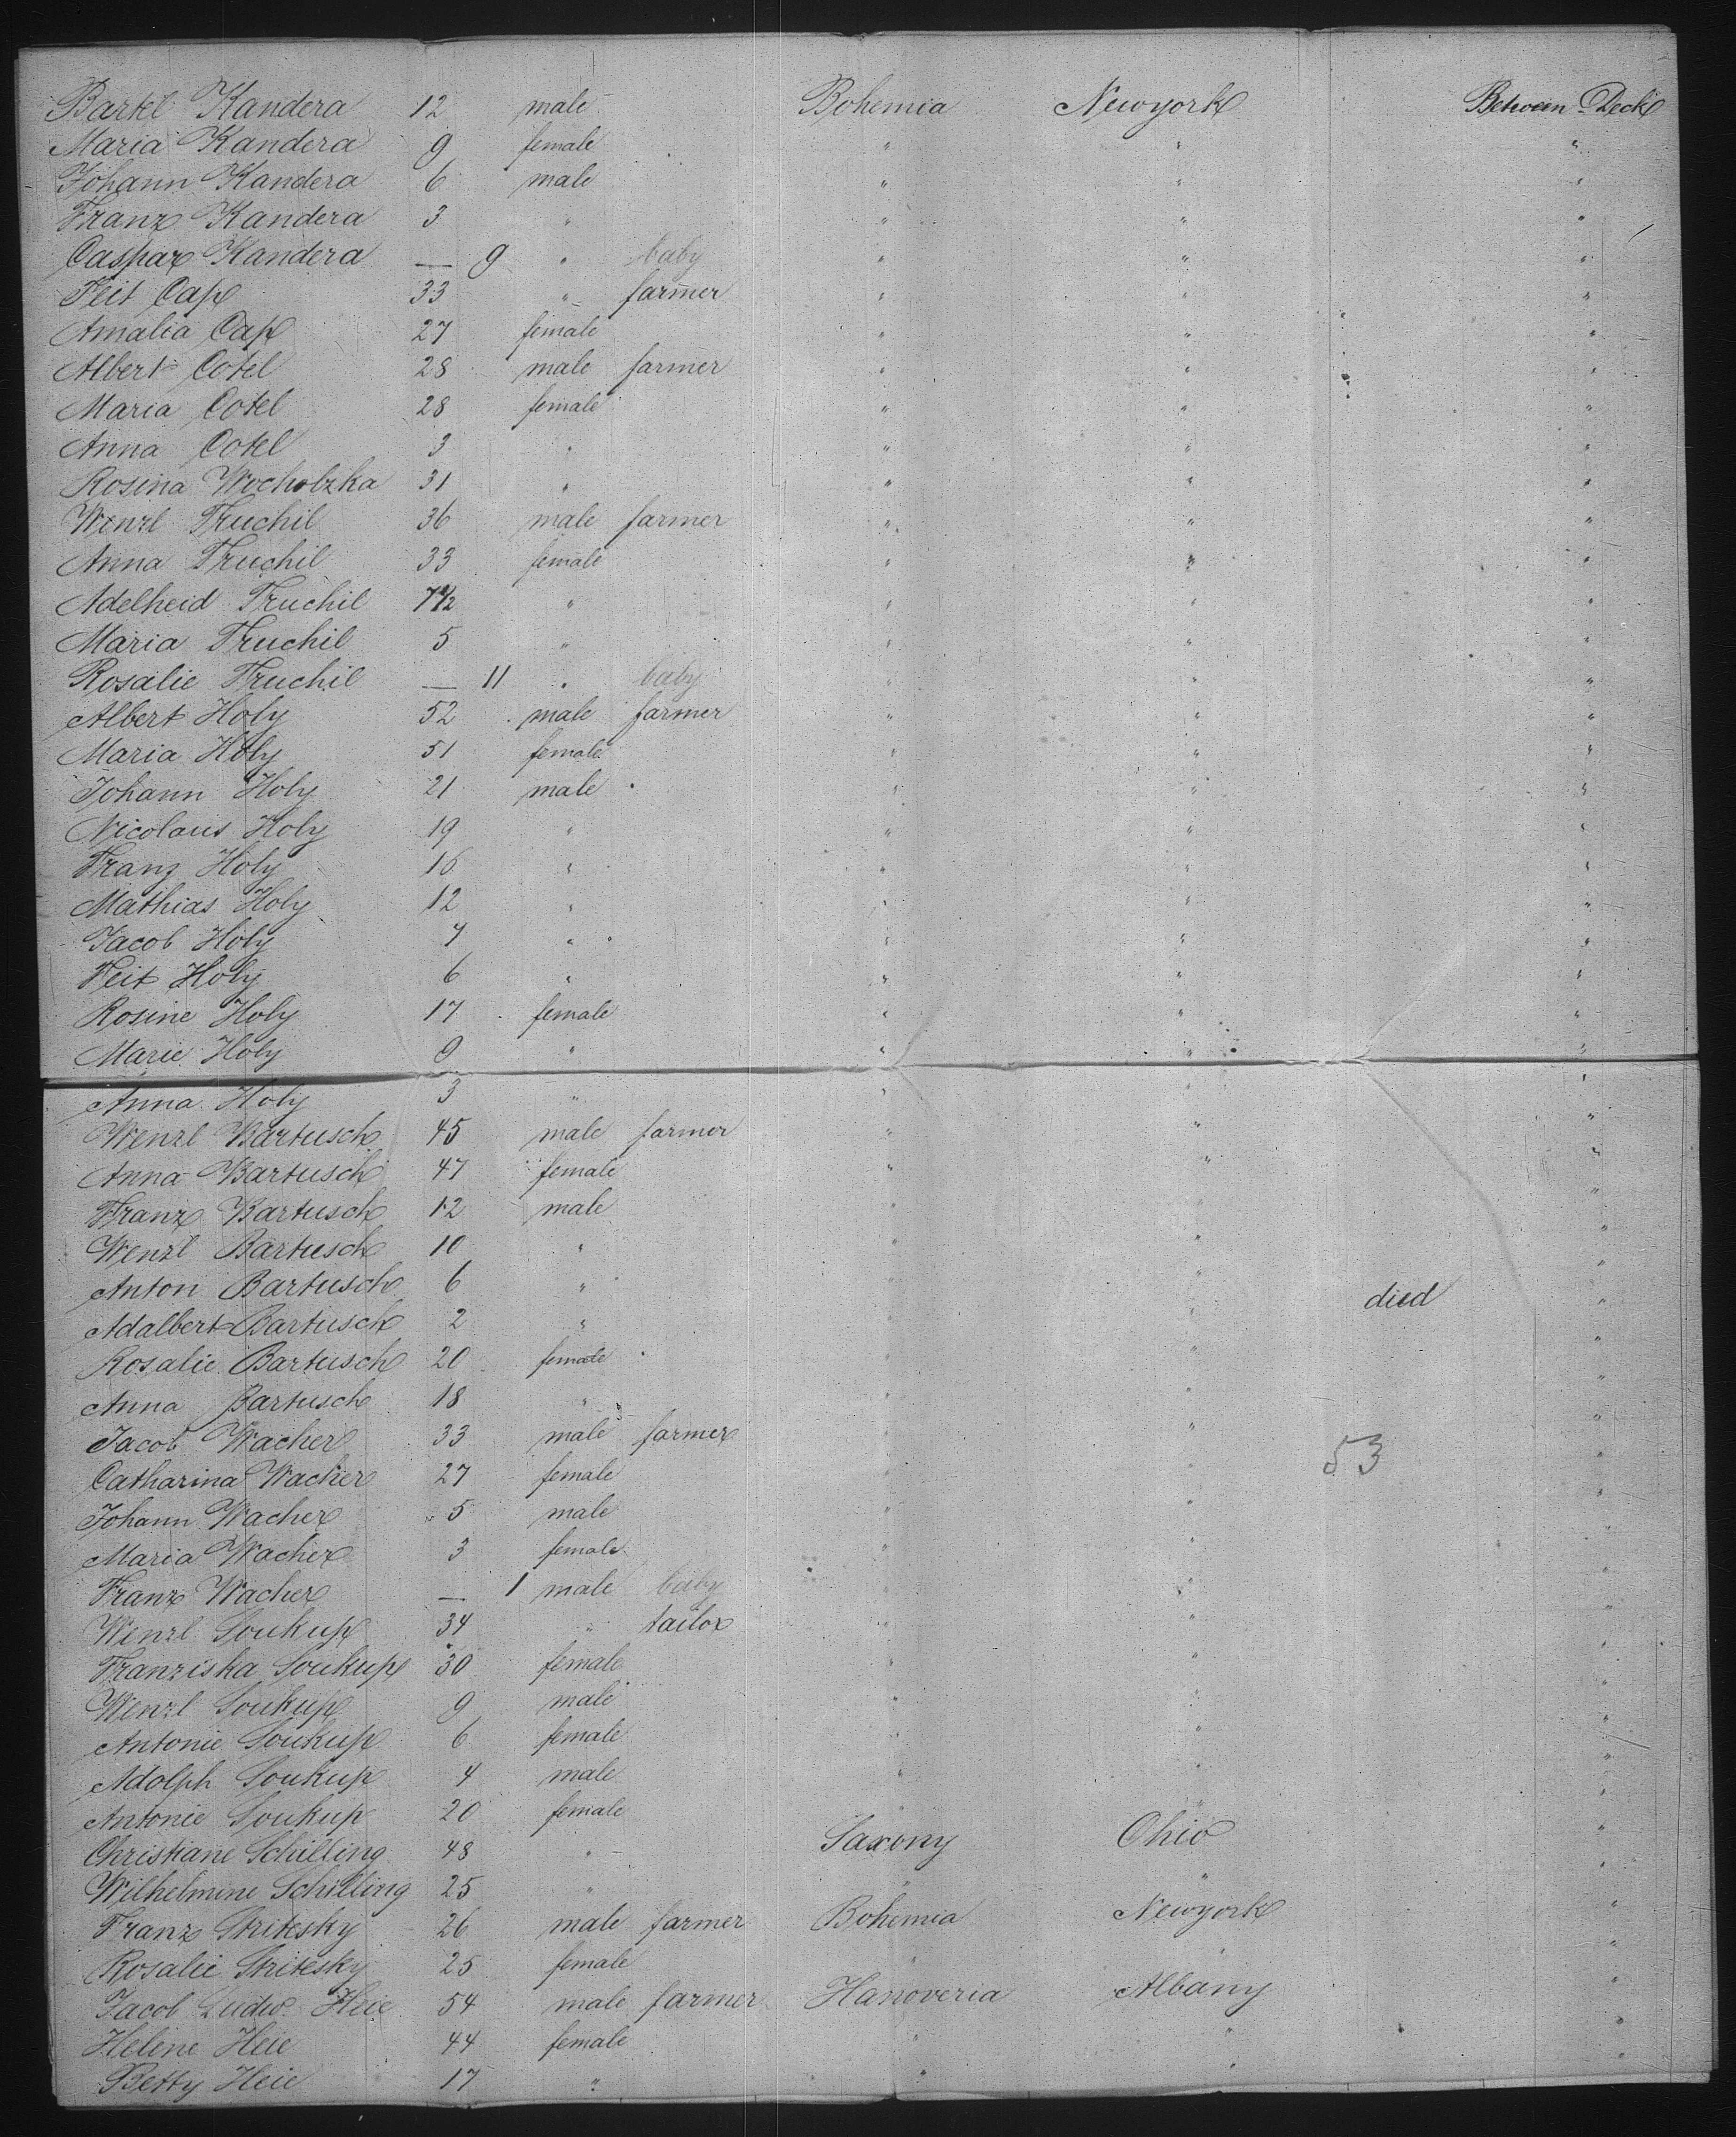 Bartel Kandera 12 male Bohemia Newyork Between Deck
Maria Kandera 9 female " " "
Johann Kandera 6 male " " "
Franz Kandera 3 " " " "
Caspar Kandera — 9 " baby " " "
Feit Cap 33 " farmer " " "
Amalia Cap 27 female " " "
Albert Cotel 28 male farmer " " "
Maria Cotel 28 female " " "
Anna Cotel 3 " " " "
Rosina Wocholzka 31 " " " "
Wenzl Truchil 36 male farmer " " "
Anna Truchil 33 female " " "
Adelheid Truchil 7 1/2 " " " "
Maria Truchil 5 " " " "
Rosalie Truchil — 11 " baby " " "
Albert Holy 52 male farmer " " "
Maria Holy 51 female " " "
Johann Holy 21 male " " "
Nicolaus Holy 19 " " " "
Franz Holy 16 " " " "
Mathias Holy 12 " " " "
Jacob Holy 7 " " " "
Feit Holy 6 " " " "
Rosine Holy 17 female " " "
Marie Holy 9 " " " "
Anna Holy 3 " " " "
Wenzl Bartusch 45 male farmer " " "
Anna Bartusch 47 female " " "
Franz Bartusch 12 male " " "
Wenzl Bartusch 10 " " " "
Anton Bartusch 6 " " " "
Adalbert Bartusch 2 " " " died "
Rosalie Bartusch 20 female " " "
Anna Bartusch 18 " " " "
Jacob Wacher 33 male farmer " " "
Catharina Wacher 27 female " " 53 "
Johann Wacher 5 male " " "
Maria Wacher 3 female " " "
Franz Wacher — 1 male baby " " "
Wenzl Soukup 34 " tailor " " "
Franziska Soukup 30 female " " "
Wenzl Soukup 9 male " " "
Antonie Soukup 6 female " " "
Adolph Soukup 4 male " " "
Antonie Soukup 20 female " " "
Christiane Schilling 48 " Saxony Ohio "
Wilhelmine Schilling 25 " " " "
Franz Stritesky 26 male farmer Bohemia Newyork "
Rosalie Stritesky 25 female " " "
Jacob Ludw. Heie 54 male farmer Hanoveria Albany "
Helene Heie 44 female " " "
Betty Heie 17 " " "